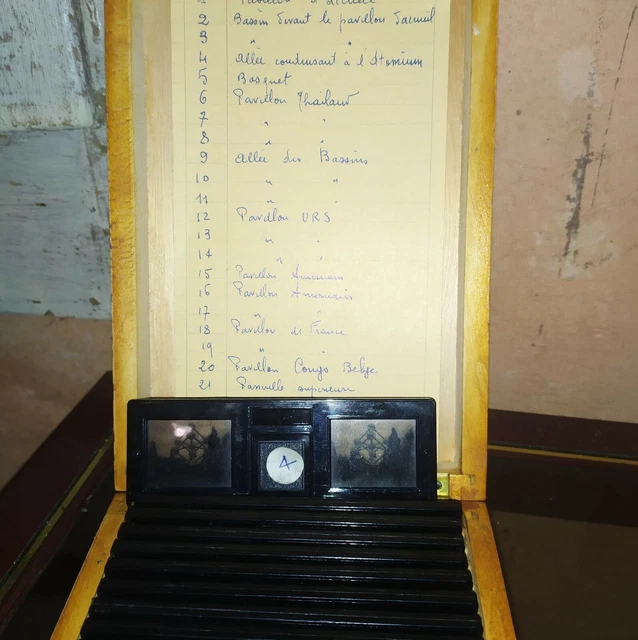 2 Bassin devant le pavillon d'accueil
3 " "
4 Allée conduisant à l'Atomium
5 Bosquet
6 Pavillon Thailand
7 " "
8 " "
9 Allée des Bassins
10 " "
11 " "
12 Pavillon URS
13 " "
14 " "
15 Pavillon Americain
16 Pavillon Americain
17 " "
18 Pavillon de France
19 " "
20 Pavillon Congo Belge
21 Passerelle supérieure
4